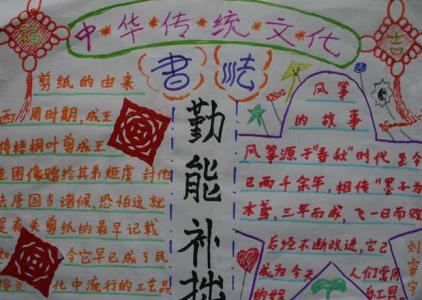 中华传统文化
吉
書法
剪纸的由来
西周时期,成王
梧桐叶剪成玉
圭图像赠给其弟姬虞 封他
去唐国当诸侯,恐怕这就
是有关剪纸的最早记载
如今它早已成了民
俗文化中流行的工艺品
勤能补拙
风筝
的故事
风筝源于"春秋"时代 至今
已两千余年,相传"墨子为
木鸢,三年而成,飞一日而败
后经不断改进,它已
成为今天 人们常用
的娱 乐工具